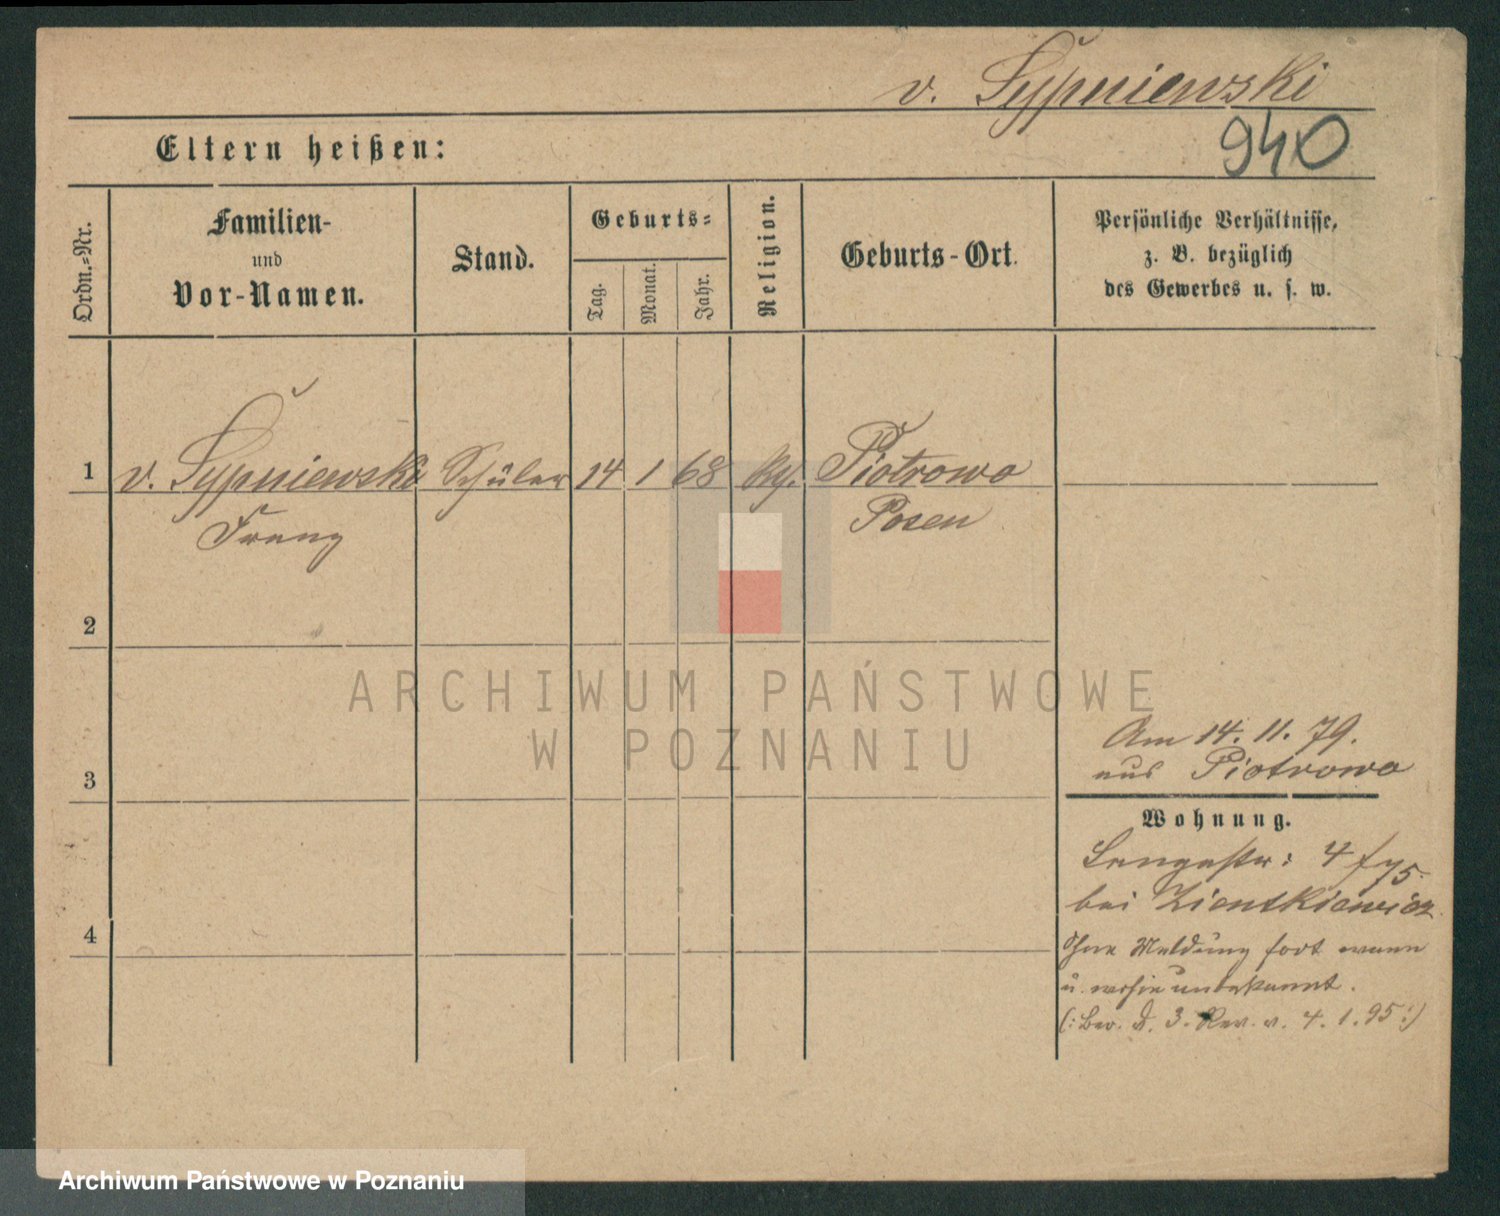 v. Sypniewski
940
Eltern heißen:
Ordn.=Nr.
Familien-
und
Vor-Namen.
Stand.
Geburts=
Tag.
Monat.
Jahr.
Religion.
Geburts-Ort.
Persönliche Verhältnisse,
z. B. bezüglich
des Gewerbes u. s. w.
1 v. Sypniewski Schüler 14 1 68 Piotrowo
Franz Posen
2
3
4
Am 14. 11. 79.
aus Piotrowo
Wohnung.
Langestr: 4
bei Zientkiewicz
Ohne Meldung fort wann
u. wohin unbekannt.
(: Ber. d. 3. Rev. v. 4. 1. 95 :)
ARCHIWUM PAŃSTWOWE
W POZNANIU
Archiwum Państwowe w Poznaniu